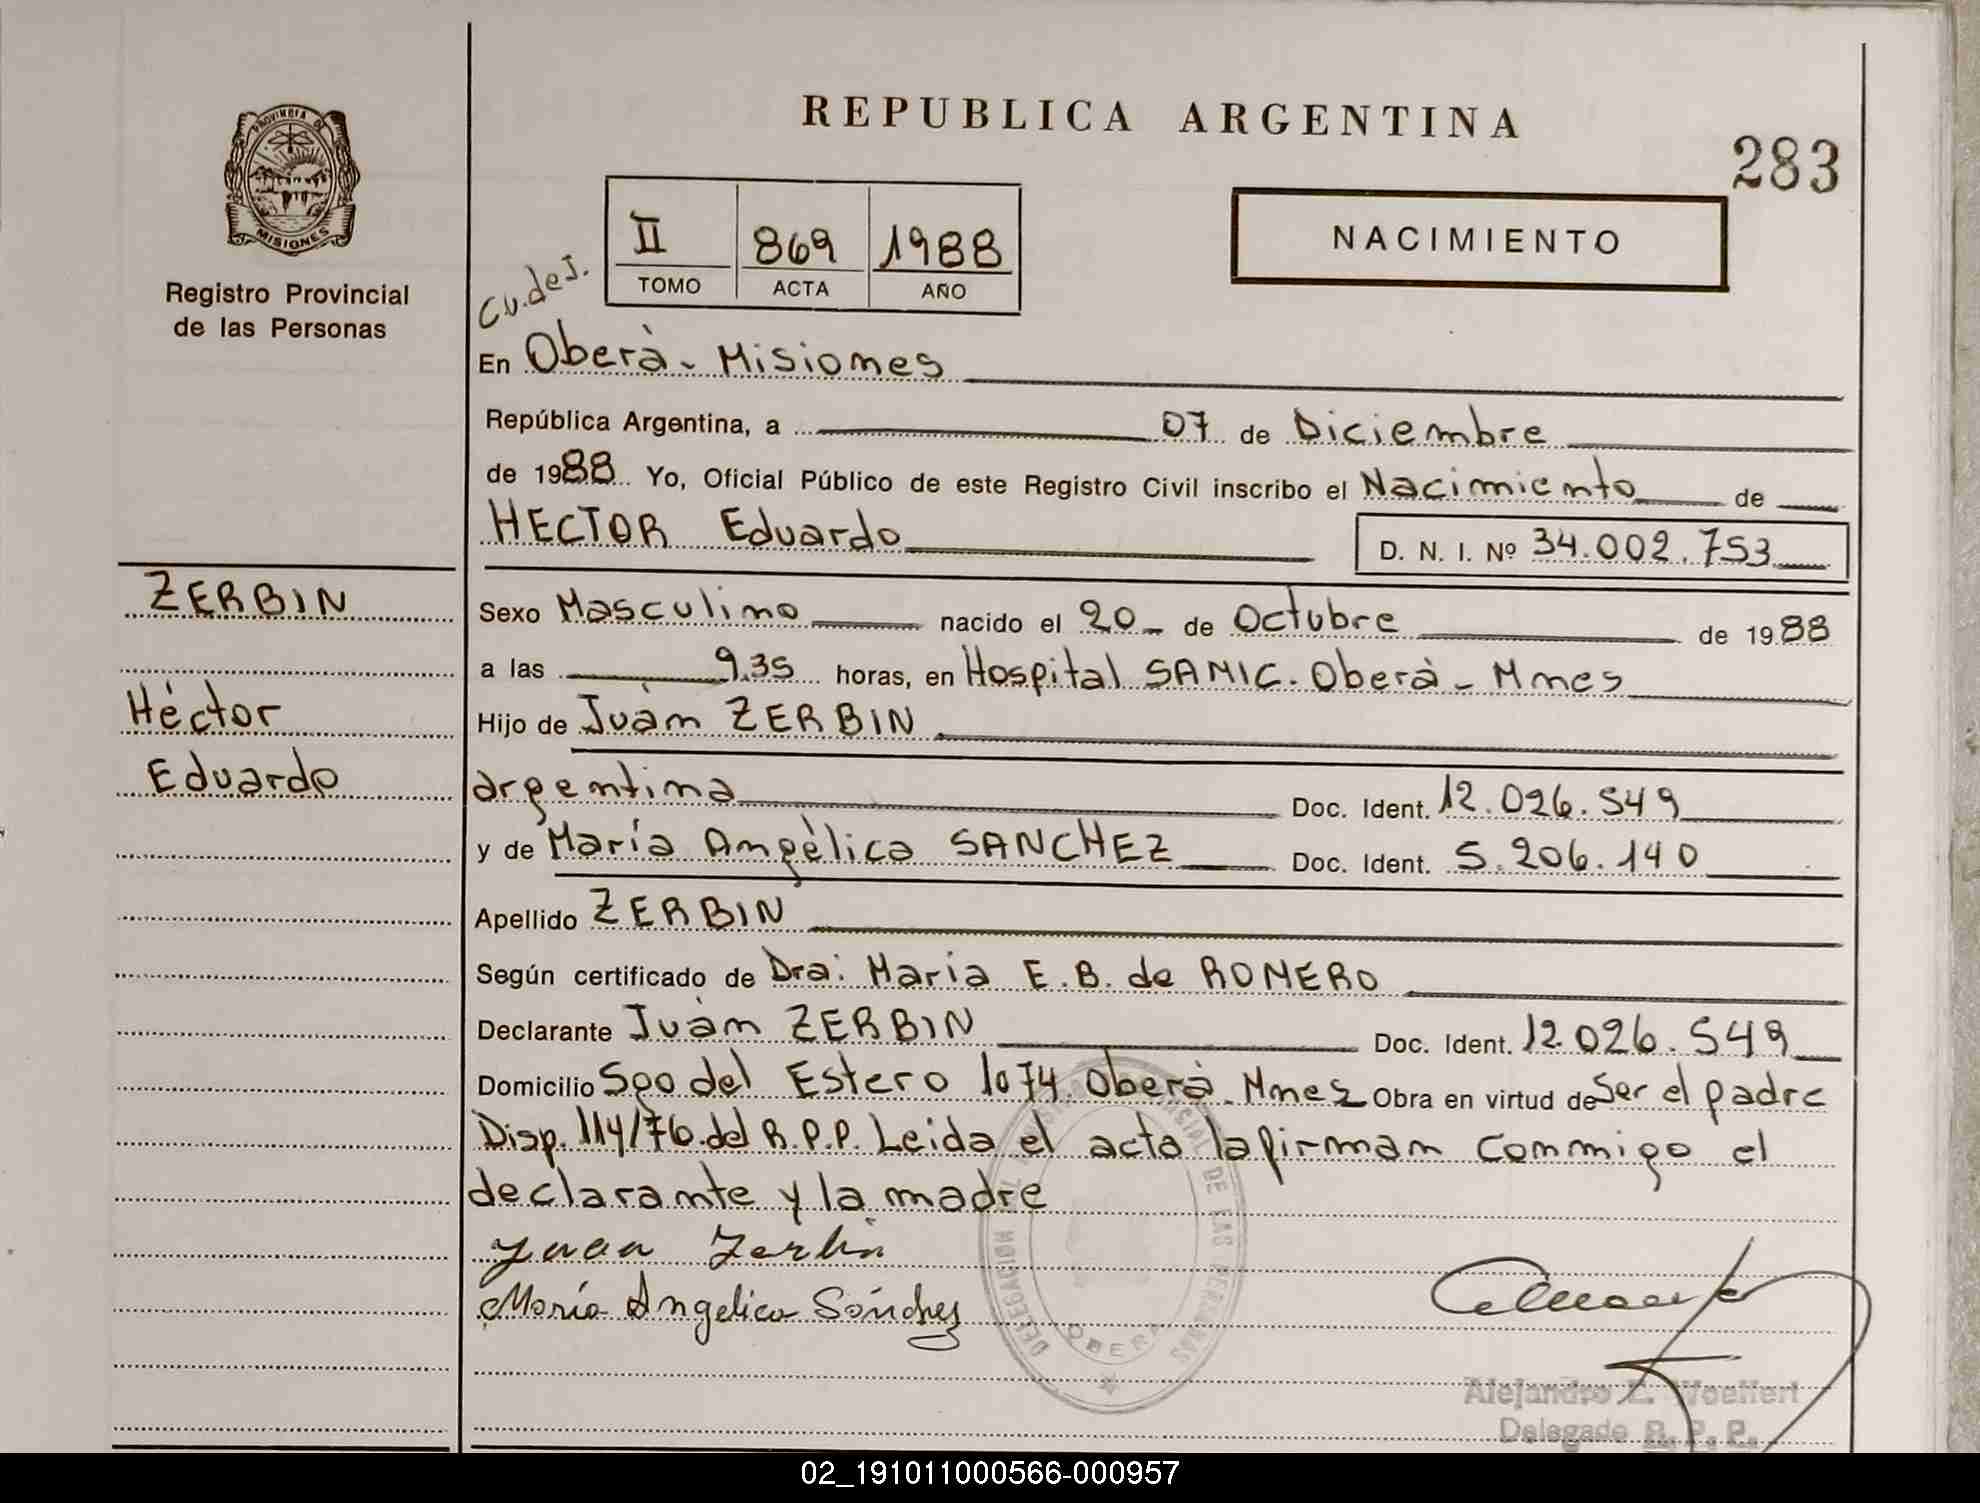 REPUBLICA ARGENTINA
283
PROVINCIA DE
MISIONES
Registro Provincial
de las Personas
II 869 1988
TOMO ACTA AÑO
NACIMIENTO
Cu.deI.
En Oberà - Misiones
República Argentina, a 07 de Diciembre
de 1988 Yo, Oficial Público de este Registro Civil inscribo el Nacimiento de
HECTOR Eduardo D. N. I. Nº 34.002.753
ZERBIN
Héctor
Eduardo
Sexo Masculino nacido el 20 de Octubre de 1988
a las 9.35 horas, en Hospital SAMIC. Oberà - Mnes
Hijo de Juàn ZERBIN
argentina Doc. Ident. 12.026.549
y de María Angèlica SANCHEZ Doc. Ident. 5.206.140
Apellido ZERBIN
Según certificado de Dra: María E. B. de ROMERO
Declarante Juàn ZERBIN Doc. Ident. 12.026.549
Domicilio Sgo del Estero 1074. Oberà - Mnes Obra en virtud de Ser el padre
Disp. 114/76 del R.P.P. Leida el acta la firman conmigo el
declarante y la madre
Juan Zerbin
María Angelica Sánchez
DELEGACION DEL REGISTRO PROVINCIAL DE LAS PERSONAS
OBERA
Alejandro E.
Delegado R. P. P.
02_191011000566-000957